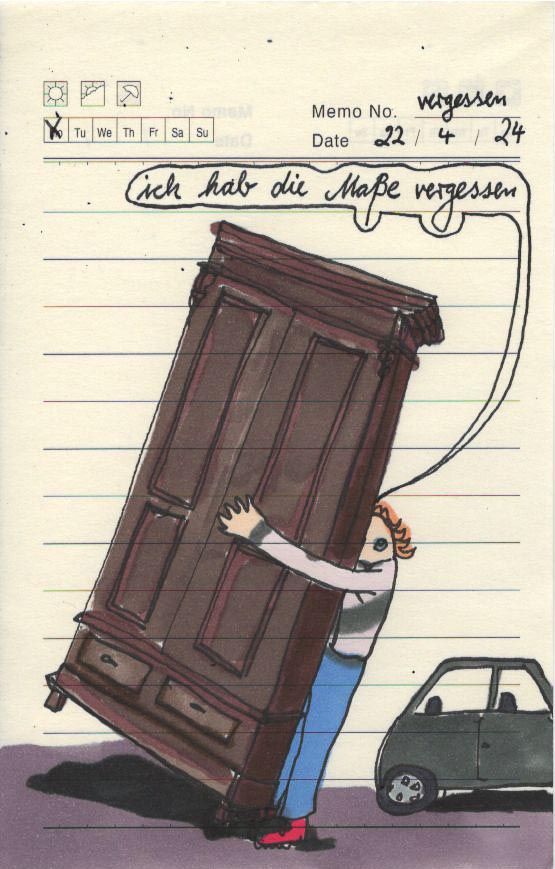 Memo No. vergessen
Mo Tu We Th Fr Sa Su
Date 22 / 4 / 24
ich hab die Maße vergessen